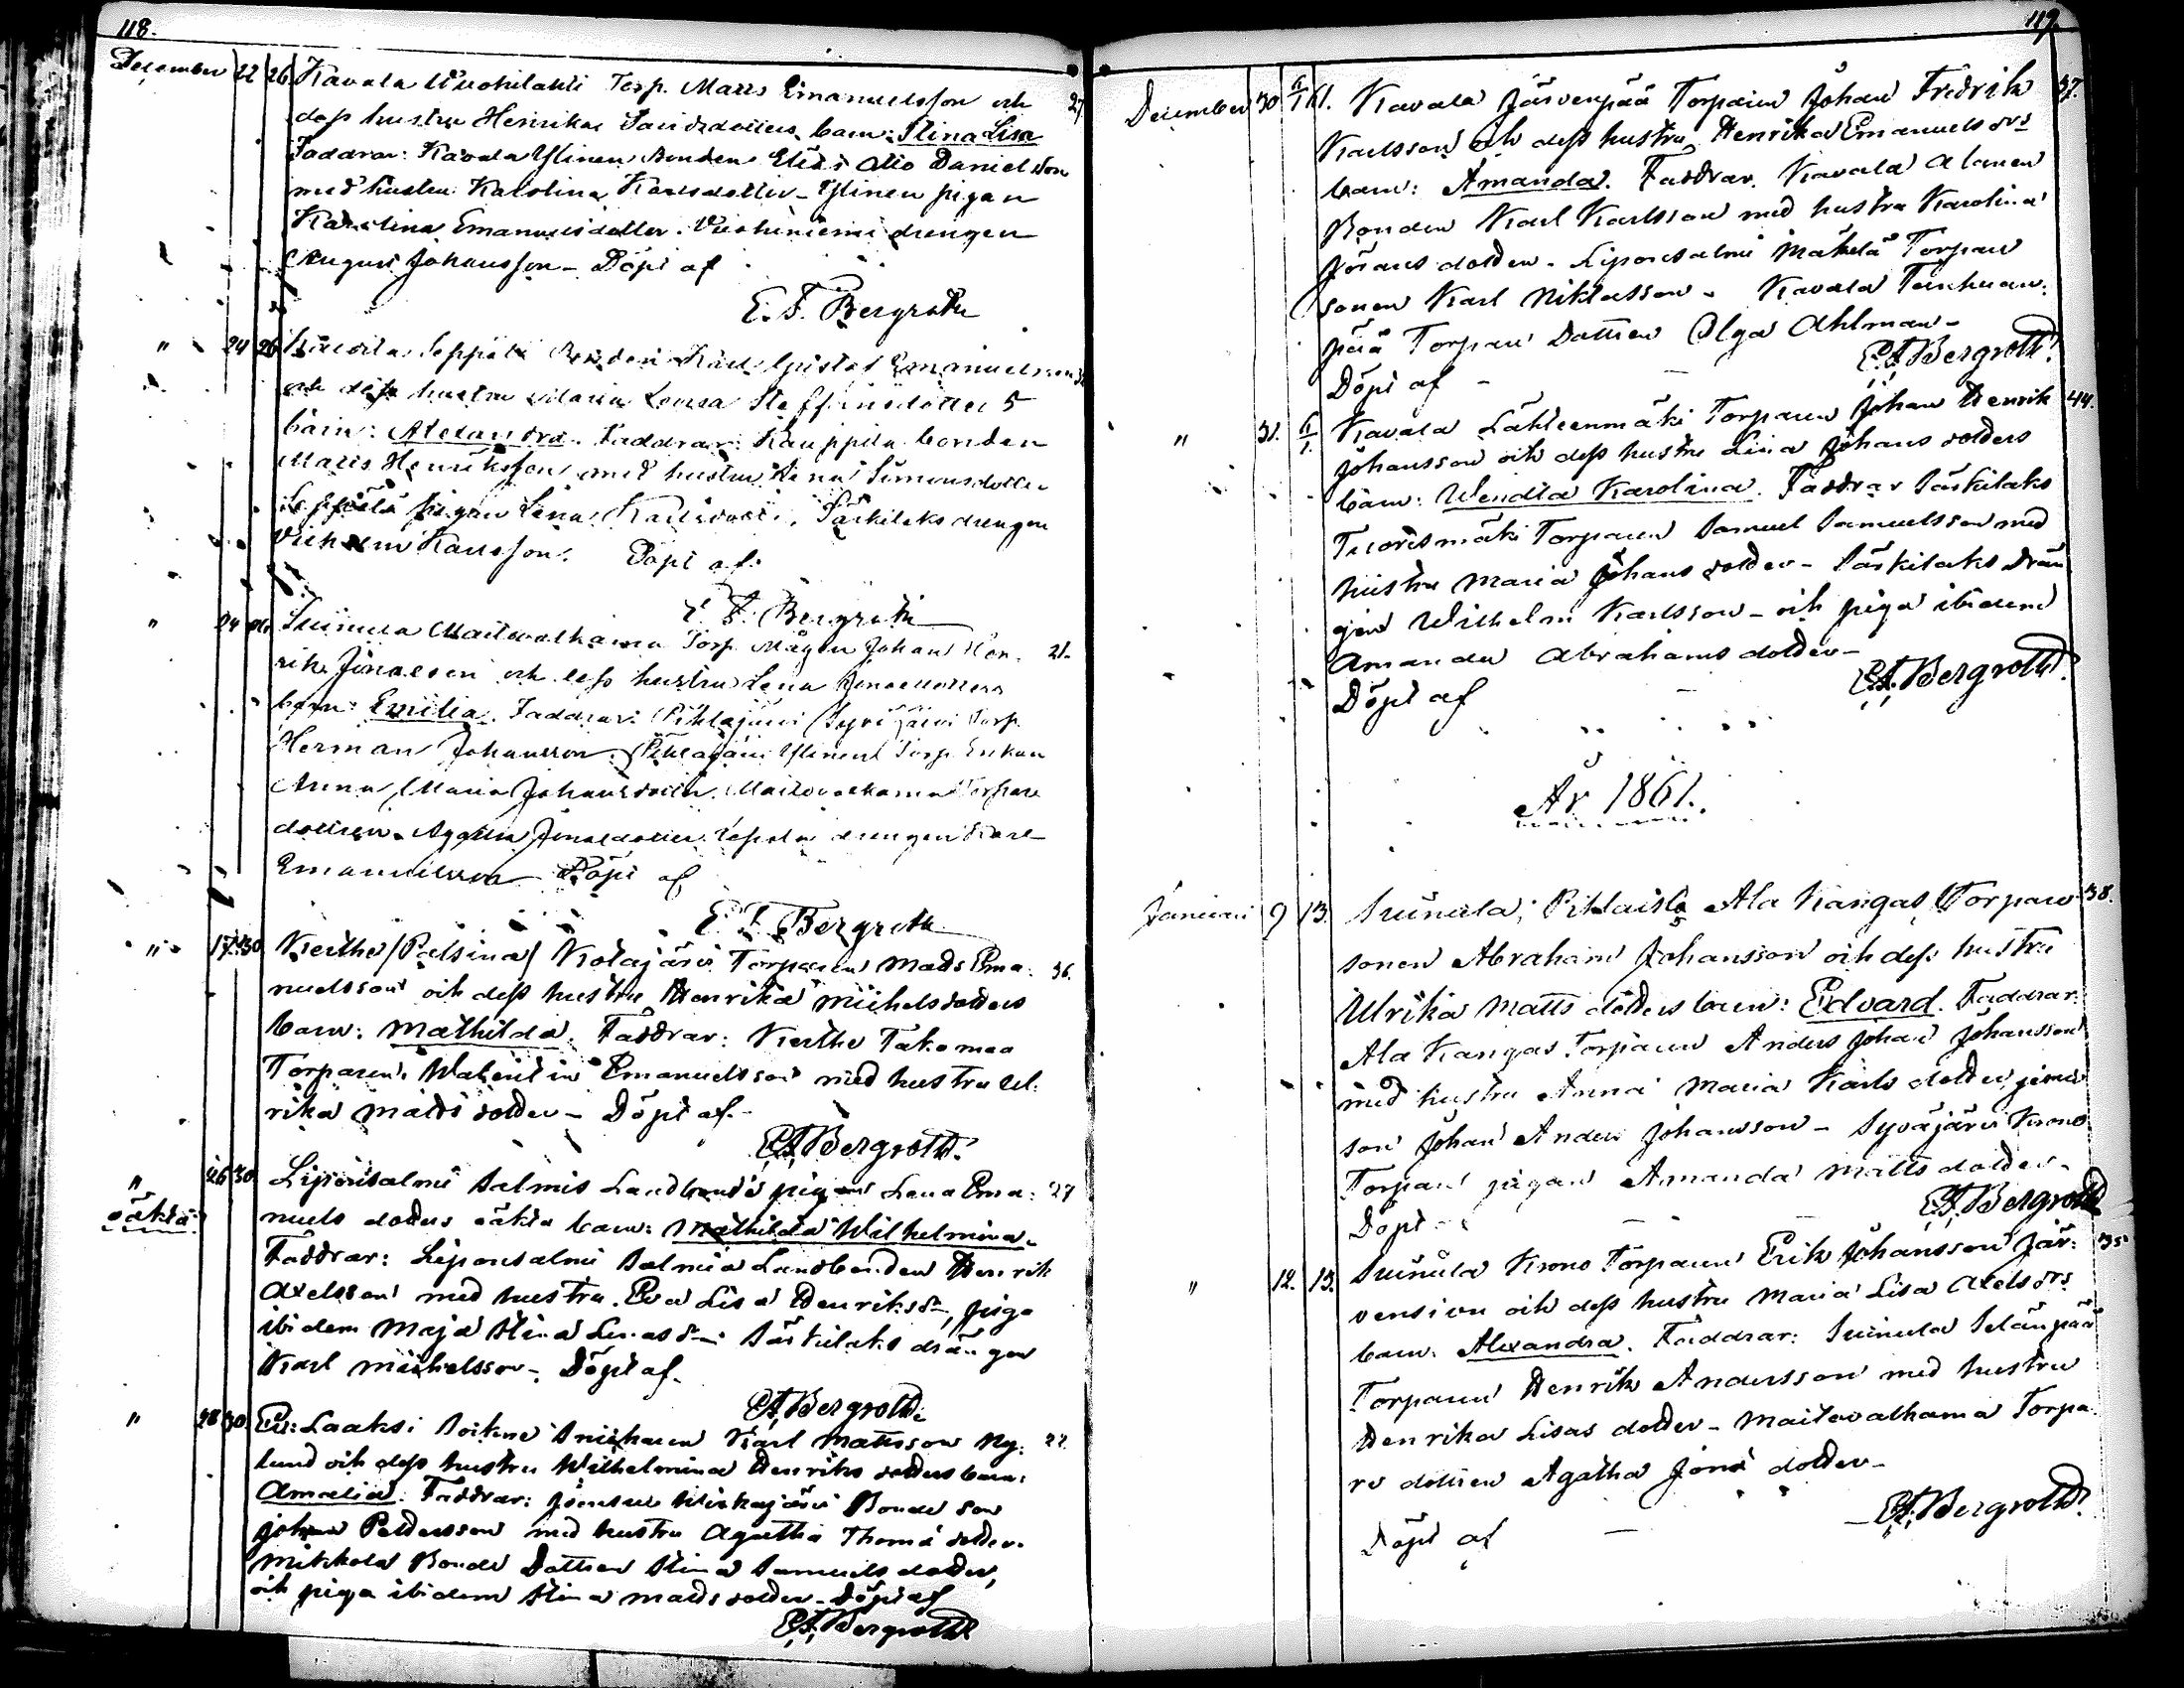 118.
December 22 26 Kavala Torp. Matts Emanuelsson och 27
dess hustru Henrika Davidsdotters barn: Stina Lisa
Faddrar: Kavala Ylinen Bonden Elias Otto Danielsson
med hustru Karolina Karlsdotter - Ylinen pigan
Karolina Emanuelsdotter. drengen
August Johansson - Döpt af
E. F. Bergroth
" 24 26 Seppälä Bonden Karl Gustaf Emanuelsson
och dess hustru Maria Lovisa Staffansdotters
barn: Alexandra. Faddrar: Kauppila bonden
Matts Henriksson med hustru Anna Simonsdotter
Seppälä pigan Lena Karlsdotter, Särkilaks drengen
Vilhelm Karlsson. Döpt af:
E. F. Bergroth
" 24 Suinula Maitovalkama Torp. Mågen Johan Hen- 21.
rik Jonasson och dess hustru Lena Jonædotters
barn: Emilia. Faddrar: Pihlajärvi Syväjärvi Torp.
Herman Johansson. Pihlajärvi Ylinen Torp. Enkan
Anna Maria Johansdotter. Maitovalkama Torpare
dottren Agatha Jonædotter. drengen Karl
Emanuelsson Döpt af
E. F. Bergroth
" 17 30 Kerthe /Patsina/ Kotajärvi Torparen Mads Ema- 36.
nuelsson och dess hustru Henrika Michelsdotters
barn: Mathilda. Faddrar: Kerthe Takamaa
Torparen Walentin Emanuelsson med hustru Ul-
rika Matts dotter - Döpt af -
E.F. Bergroth.
" 26 30 Liposensalmi Salmis Landbonde pigan Lena Ema- 27
oäkta
nuels dotters oäkta barn: Mathilda Wilhelmina.
Faddrar: Liponsalmi Salmia Landbonden Henrik
Axelsson med hustru Eva Lisa Henriksdr, piga
ibidem Maja Stina Lucasdr Särkilaks drängen
Karl Michelsson - Döpt af -
E.F. Bergroth.
" 28 30 Laaksi Soikne Snickaren Karl Mattsson Ny- 22.
lund och dess hustru Wilhelmina Henriks dotters barn:
Amalia. Faddrar: Bonde son
Johan Pettersson med hustru Agatha Thomæ dotter.
Mikkola Bonde Dottren Stina Samuels dotter,
och piga ibidem Stina Mattsdotter - Döpt af
E.F. Bergroth
119.
December 30 6/1 61. Kavala Järvenpää Torparen Johan Fredrik 37.
Karlsson och dess hustru Henrika Emanuels drs
barn: Amanda. Faddrar. Kavala Alanen
Bonden Karl Karlsson med hustru Karolina
Jörans dotter - Liponsalmi Mäkelä Torpare
sonen Karl Niklasson - Kavala
pää Torpare Dottren Olga Ahlman -
Döpt af - E.F. Bergroth.
" 31. 6/1. Kavala Lähteenmäki Torparen Johan Henrik 44.
Johansson och dess hustru Lisa Johans dotters
barn: Wendla Karolina. Faddrar Särkilaks
Tuorismäki Torparen Samuel Samuelsson med
hustru Maria Johans dotter - Särkilaks Drän
gen Wilhelm Karlsson - och piga ibidem
Amanda Abrahams dotter -
Döpt af - E.F. Bergroth.
År 1861.
Januari 9 13. Suinula, Pihlaisto Ala Kangas Torpare 38.
sonen Abraham Johansson och dess hustru
Ulrika Matts dotters barn: Edvard. Faddrar:
Ala Kangas Torparen Anders Johan Johansson
med hustru Anna Maria Karls dotter,
son Johan Anders Johansson - Syväjärvi Krono
Torpare pigan Amanda Matts dotter -
Döpt - E.F. Bergroth
" 12. 13. Suinula Krono Torparen Erik Johansson Jär- 35
vensivu och dess hustru Maria Lisa Axels drs
barn. Alexandra. Faddrar: Suinula Selänpää
Torparen Henrik Andersson med hustru
Henrika Lisas dotter - Maitovalkama Torpa-
re dottren Agatha Jonæ dotter -
Döpt af - E.F. Bergroth.